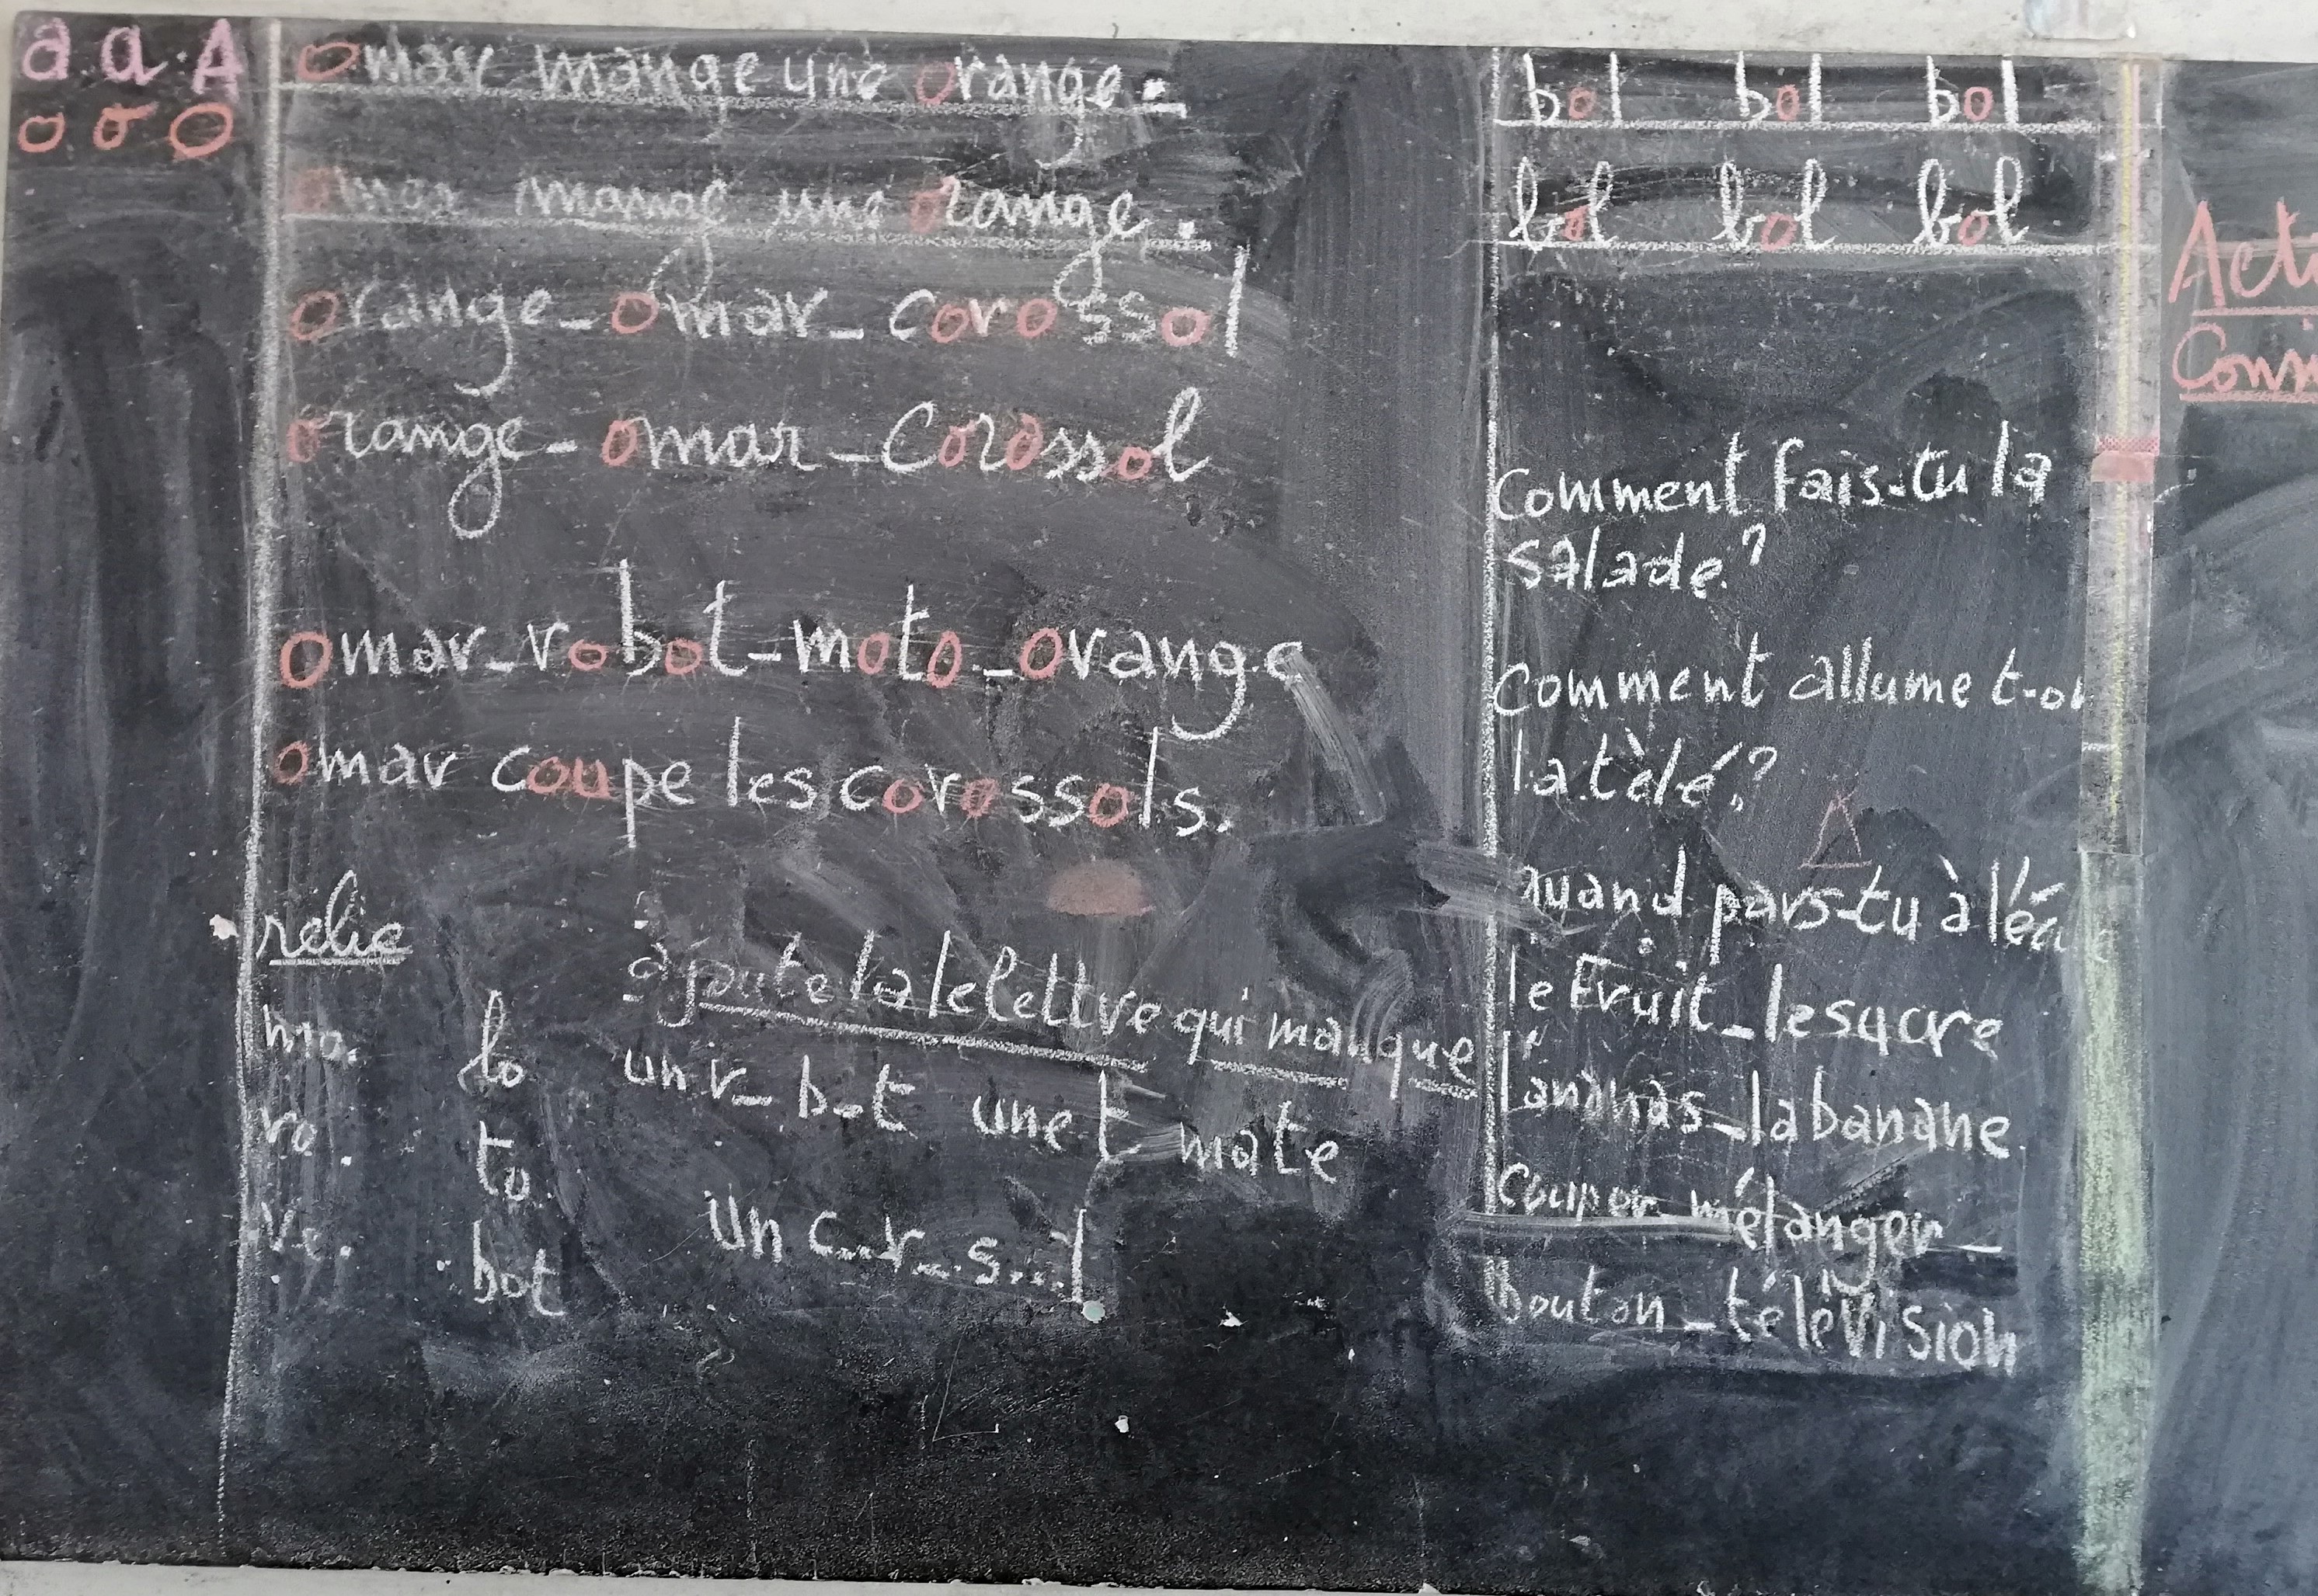 a a A
o o O
Omar mange une orange.
Omar mange une orange.
orange - omar - corossol
orange - omar - Corossol
omar - robot - moto - orange
omar coupe les corossols.
relie
mo. lo
ro. to.
vé. bot
ajoute la le lettre qui manque
un r_ b_t une t mate
un c_r_s...l
bol bol bol
bol bol bol
Comment fais-tu la
salade?
Comment allume t-on
la tèlé?
A
quand pars-tu à l'éc
le fruit - le sucre
l'ananas - la banane.
couper mélanger -
bouton - télévision
Acti
Conn